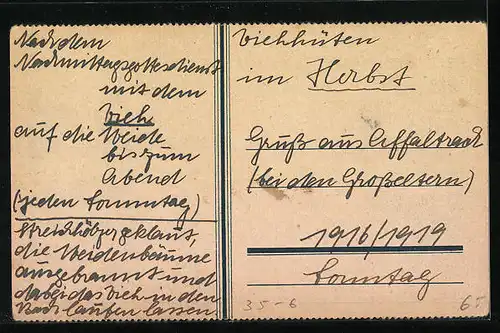 Nach dem
Nachmittagsgottesdienst
mit dem
Vieh
auf die Weide
bis zum
Abend
(jeden Sonntag)
Streichhölzer geklaut,
die Weidenbäume
ausgebrannt und
dabei das Vieh in den
Bach laufen lassen
Viehhüten
im Herbst
Gruß aus Affaltrach
(bei den Großeltern)
1916/1919
Sonntag
35-6
6.-